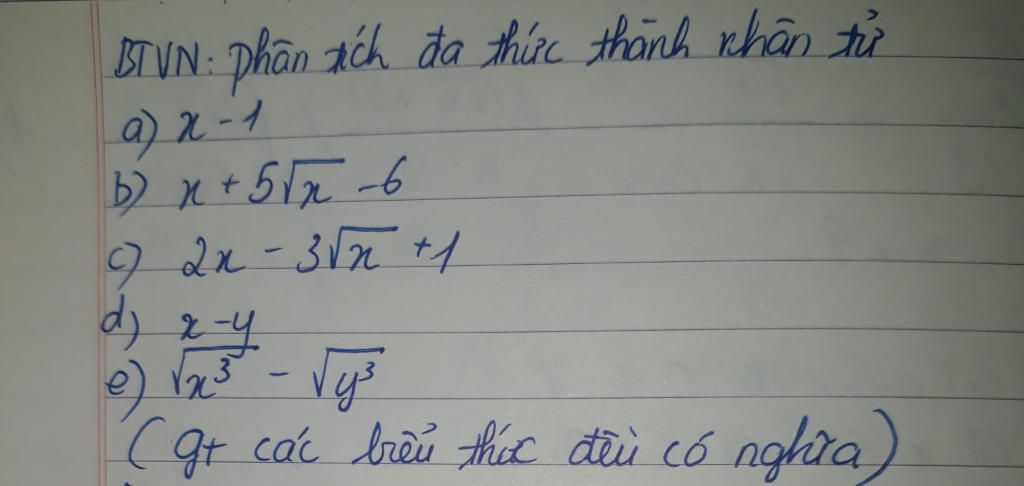 BTVN: phân tích đa thức thành nhân tử
a) x - 1
b) x + 5√x - 6
c) 2x - 3√x + 1
d) x - y
e) √x³ - √y³
(gt các biểu thức đều có nghĩa)